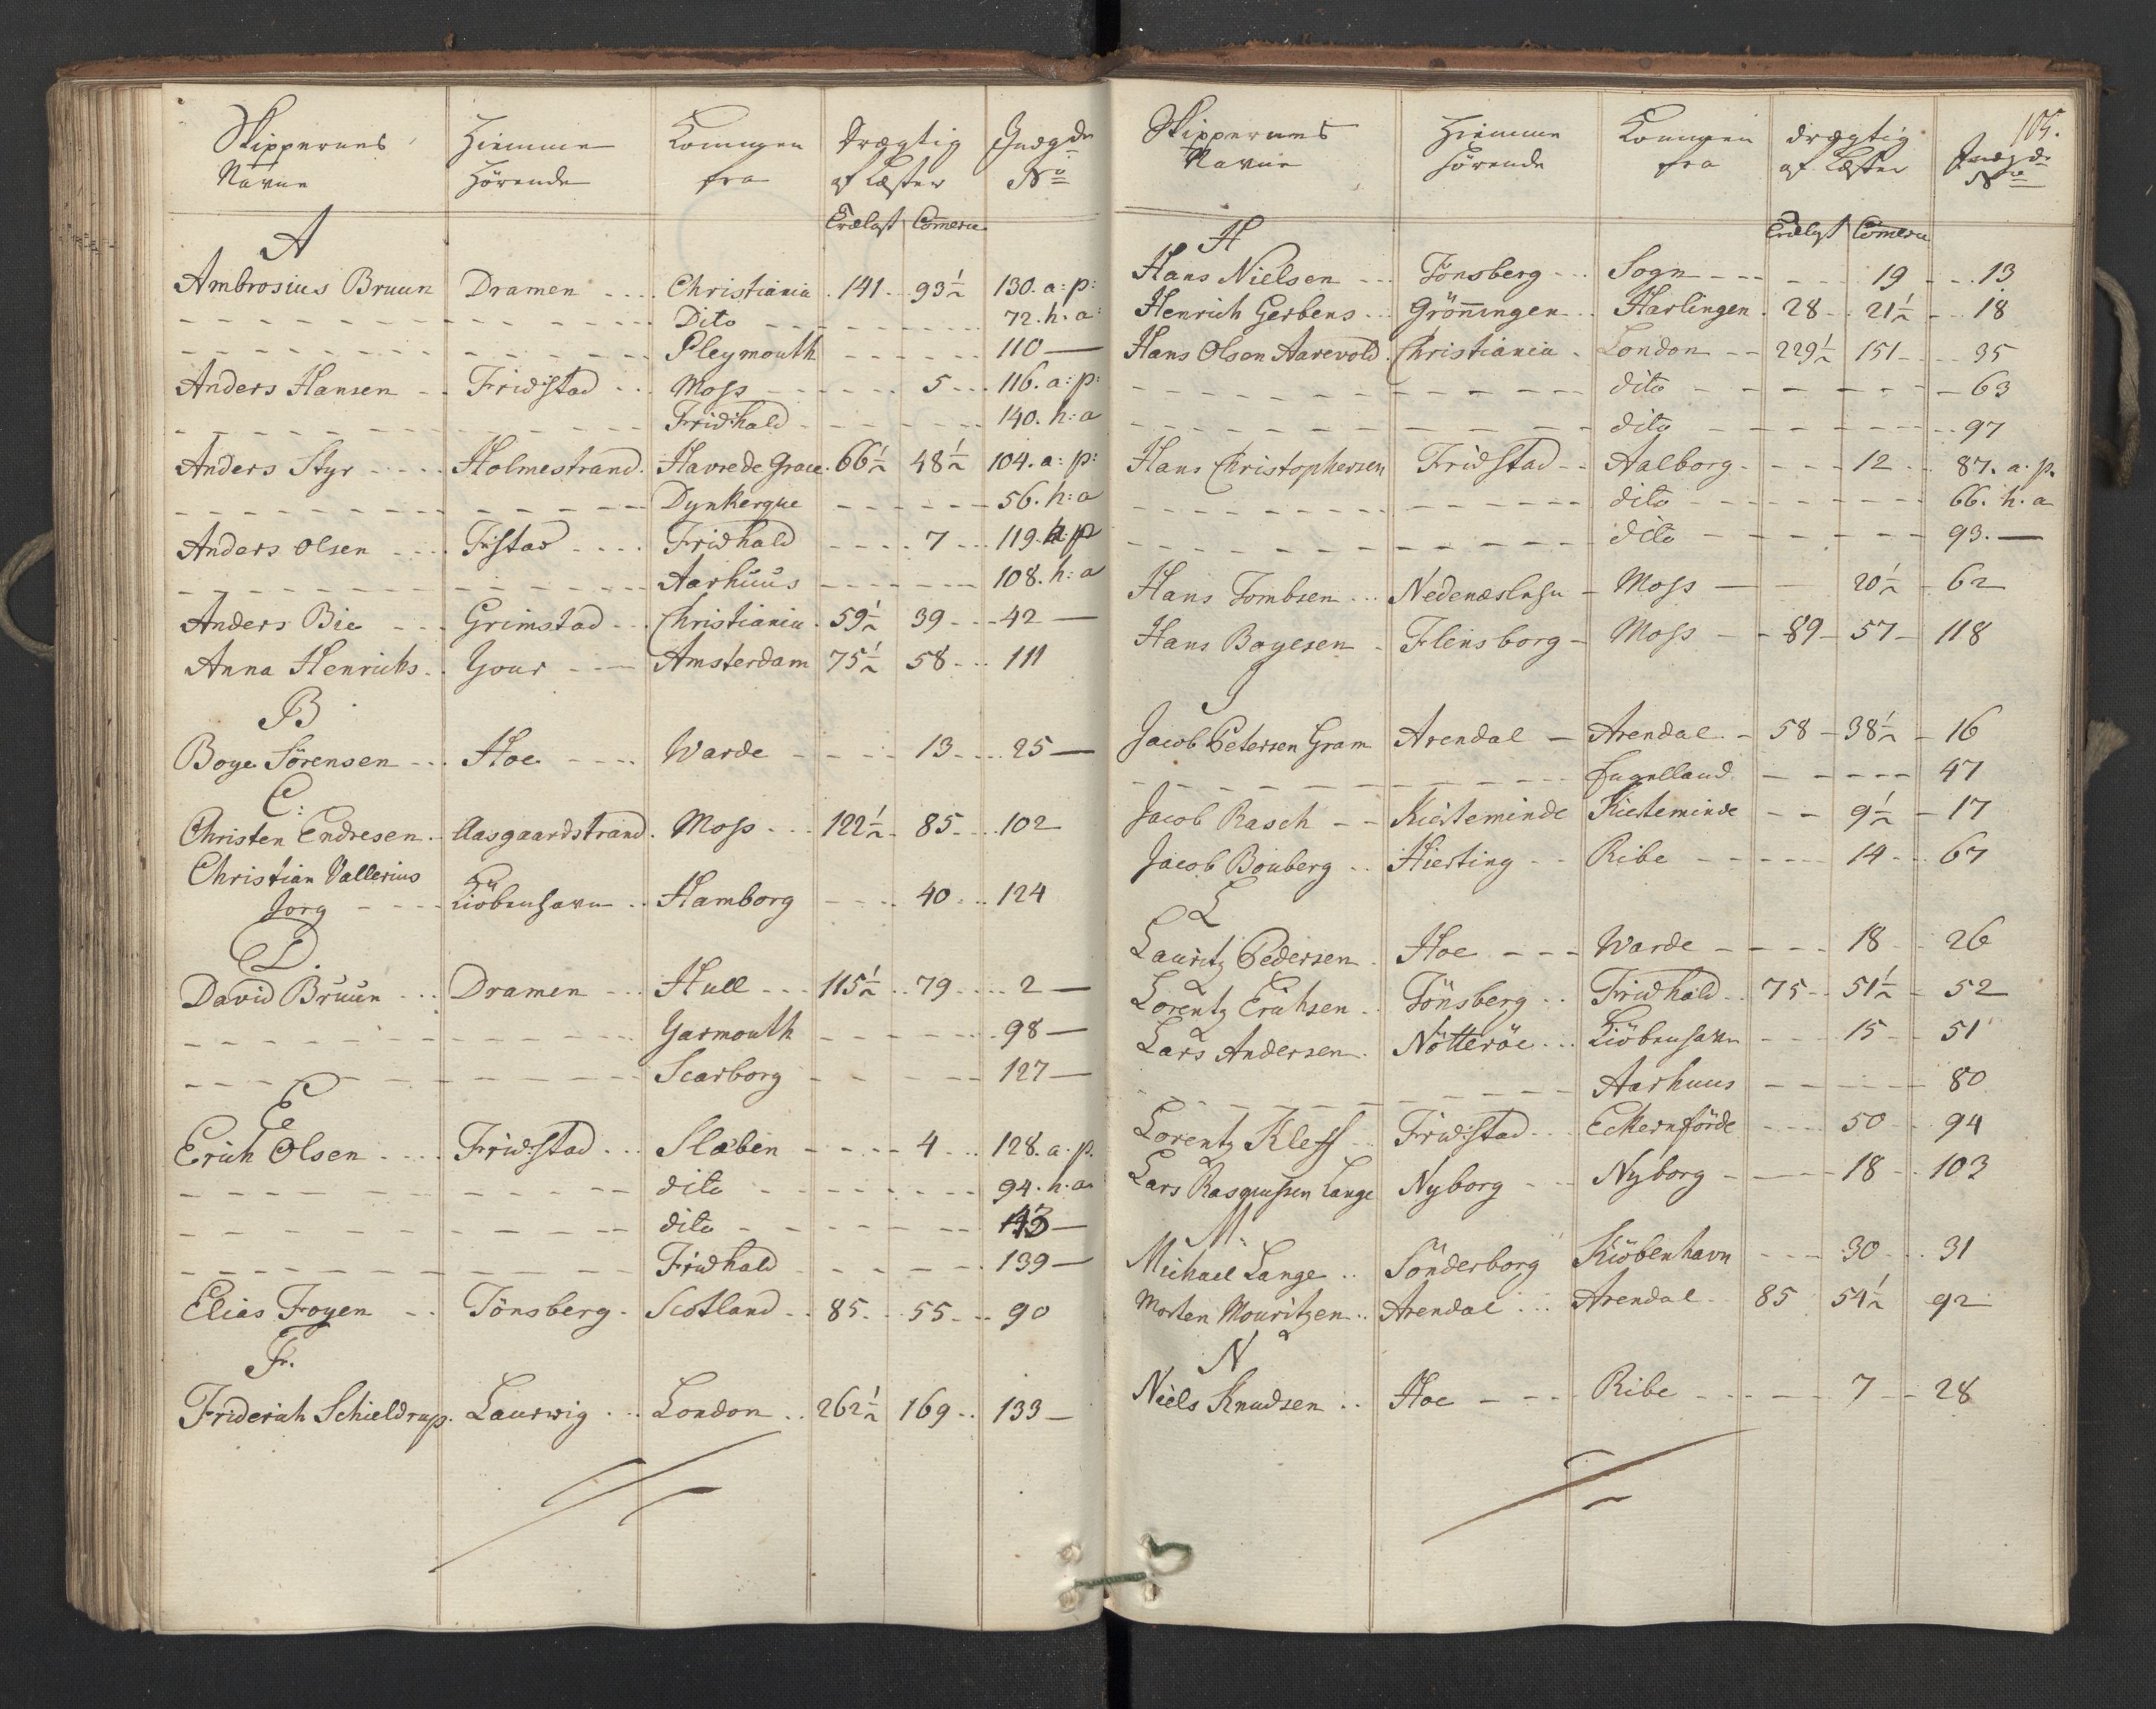 Skippernes Hiemme Kommen Drægtig Inægds
Navne Hörende fra af Læster No
Trælast Comerce
A
Ambrosius Bruun Dramen Christiania 141 93½ 130. a: p:
Dito 72. h: a:
Pleymouth 110
Anders Hansen Fridstad Moss 5 116. a: p:
Fridhald 140. h: a
Anders Styr Holmestrand Havre de Grace 66½ 48½ 104. a: p:
Dynkerque 56. h: a
Anders Olsen Fstad Fridhald 7 119. a: p
Aarhuus 108. h: a
Anders Bie Grimstad Christiania 59½ 39 42
Anna Henrichs Your Amsterdam 75½ 58 111
B
Boye Sörensen Hoe Warde 13 25
C:
Christen Endresen Aasgaardstrand Moss 122½ 85 102
Christian Vallerius
Jorg Kiöbenhavn Hamborg 40 124
D.
David Bruun Dramen Hull 115½ 79 2
Yarmouth 98
Scarborg 127
E
Erich Olsen Fridstad Slæben 4 128. a. p.
dito 94. h. a.
dito 43
Fridhald 139
Elias Foyen Tönsberg Scotland 85 55 90
Fr.
Friderich Schieldrup Laurwig London 262½ 169 133
105.
Skippernes Hiemme Kommen drægtig Inægds
Navne hörende fra af Læster No
Trælast Comerce
H
Hans Nielsen Tönsberg Sogn 19 13
Henrich Gerbens Gröningen Harlingen 28 21½ 18
Hans Olsen Aarevold Christiania London 229½ 151 35
dito 63
dito 97
Hans Christophersen Fridstad Aalborg 12 87. a. p.
dito 66. h. a
dito 93.
Hans Tombsen Nedenæs Moss 20½ 62
Hans Boyesen Flensborg Moss 89 57 118
J
Jacob Petersen Gram Arendal Arendal 58 38½ 16
Engelland 47
Jacob Rasch Kierteminde Kierteminde 9½ 17
Jacob Bouberg Hierting Ribe 14 67
L
Lauritz Pedersen Hoe Warde 18 26
Lorentz Erichsen Tönsberg Fridhald 75 51½ 52
Lars Andersen Nötteröe Kiöbenhavn 15 51
Aarhuus 80
Lorentz Kleff Fridstad Eckernförde 50 94
Lars Rasmussen Lange Nyborg Nyborg 18 103
M.
Michael Lange Sönderborg Kiöbenhavn 30 31
Morten Mouritzen Arendal Arendal 85 54½ 92
N
Niels Knudsen Hoe Ribe 7 28